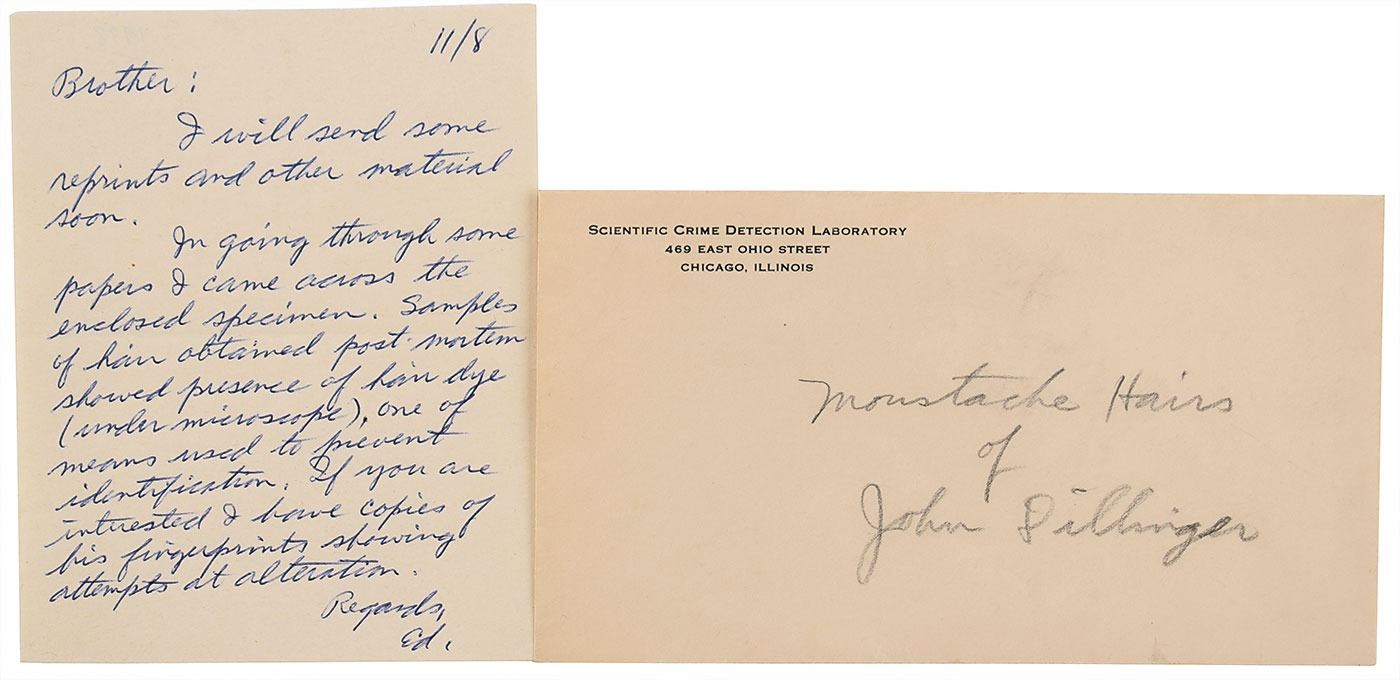 11/8
Brother:
I will send some
reprints and other material
soon.
In going through some
papers I came across the
enclosed specimen. Samples
of hair obtained post-mortem
showed presence of hair dye
(under microscope), one of
means used to prevent
identification. If you are
interested I have copies of
his fingerprints showing
attempts at alteration.
Regards,
Ed.
SCIENTIFIC CRIME DETECTION LABORATORY
469 EAST OHIO STREET
CHICAGO, ILLINOIS
Moustache Hairs
of
John Dillinger